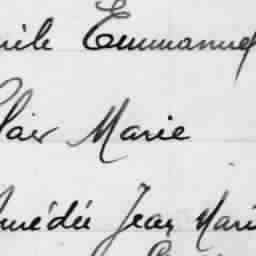 Emmanuel
Clair Marie
Amédée Jean Marie